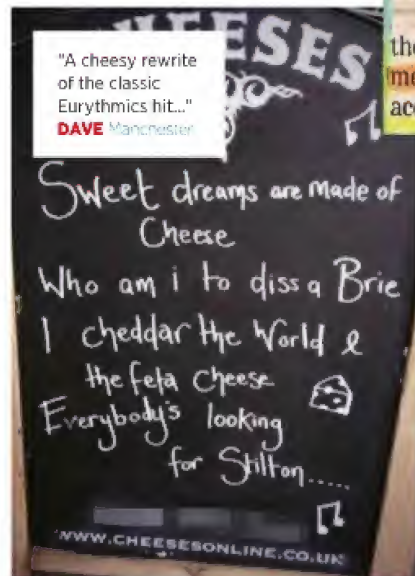 CHEESES
"A cheesy rewrite
of the classic
Eurythmics hit..."
DAVE Manchester
Sweet dreams are made of
Cheese
Who am i to diss a Brie
I cheddar the World &
the feta cheese
Everybody's looking
for Stilton.....
WWW.CHEESESONLINE.CO.UK